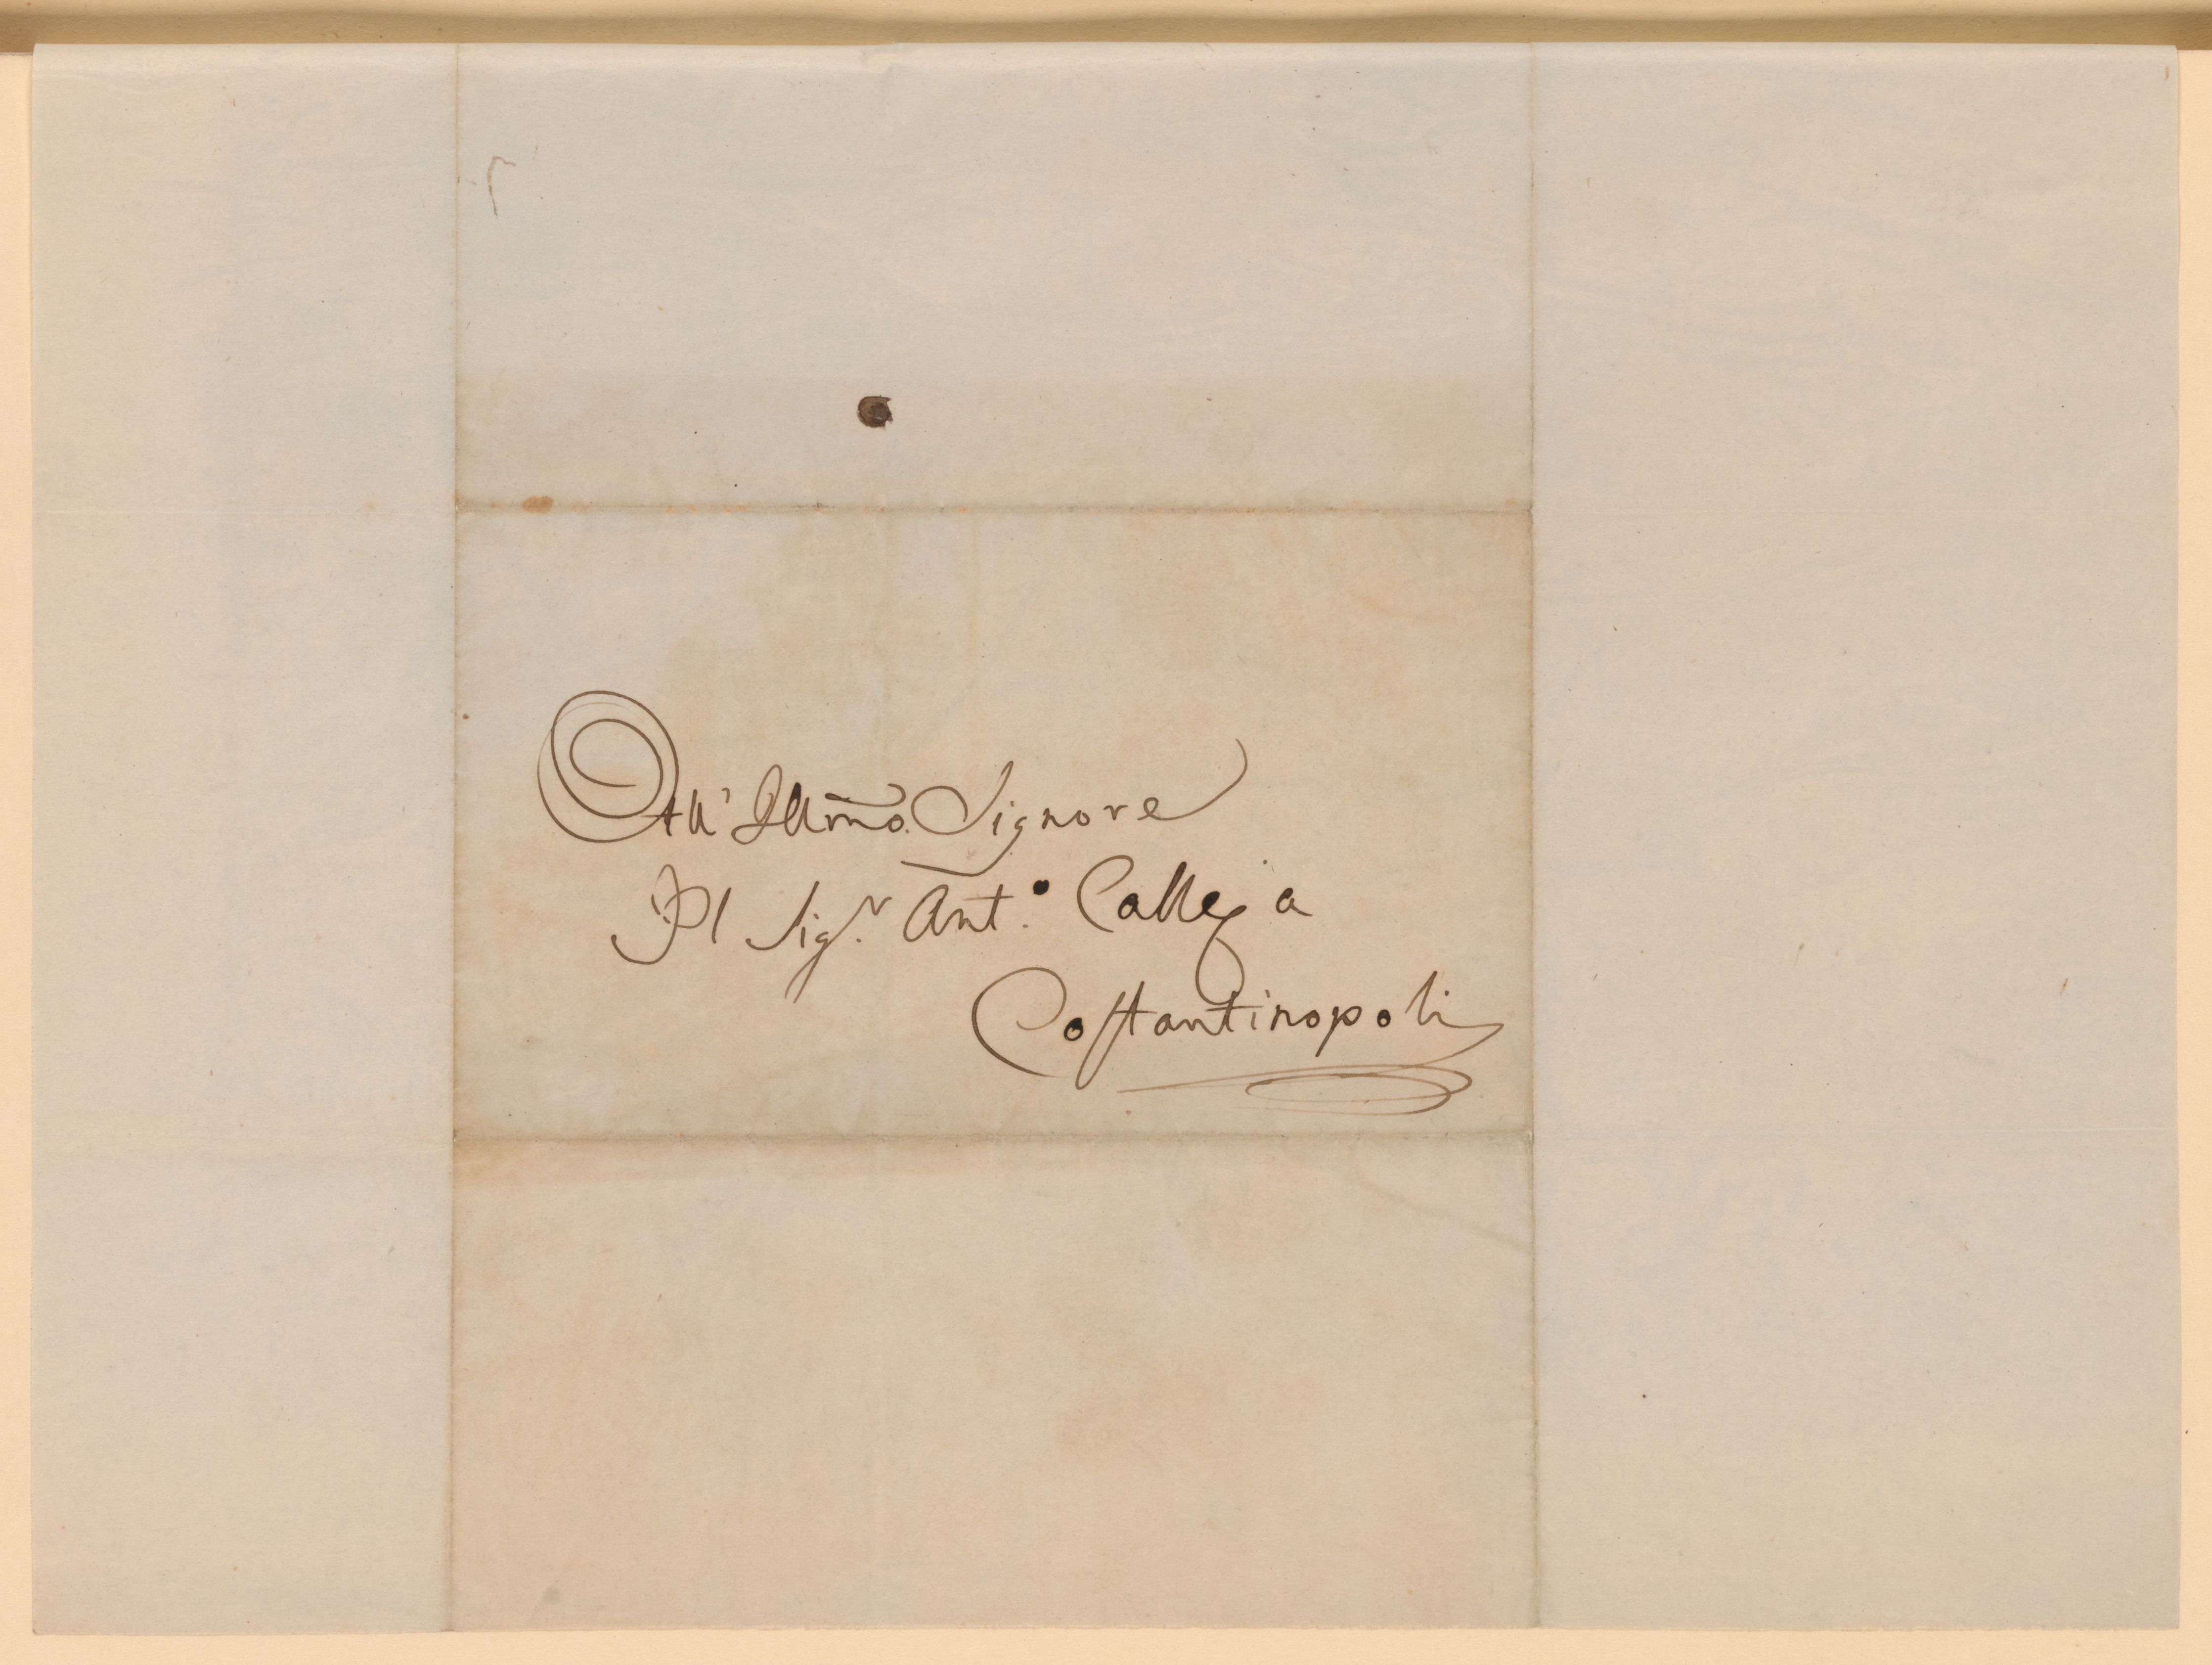 All' Illmo. Signore
Il Sigr. Anto. Calleja
Costantinopoli